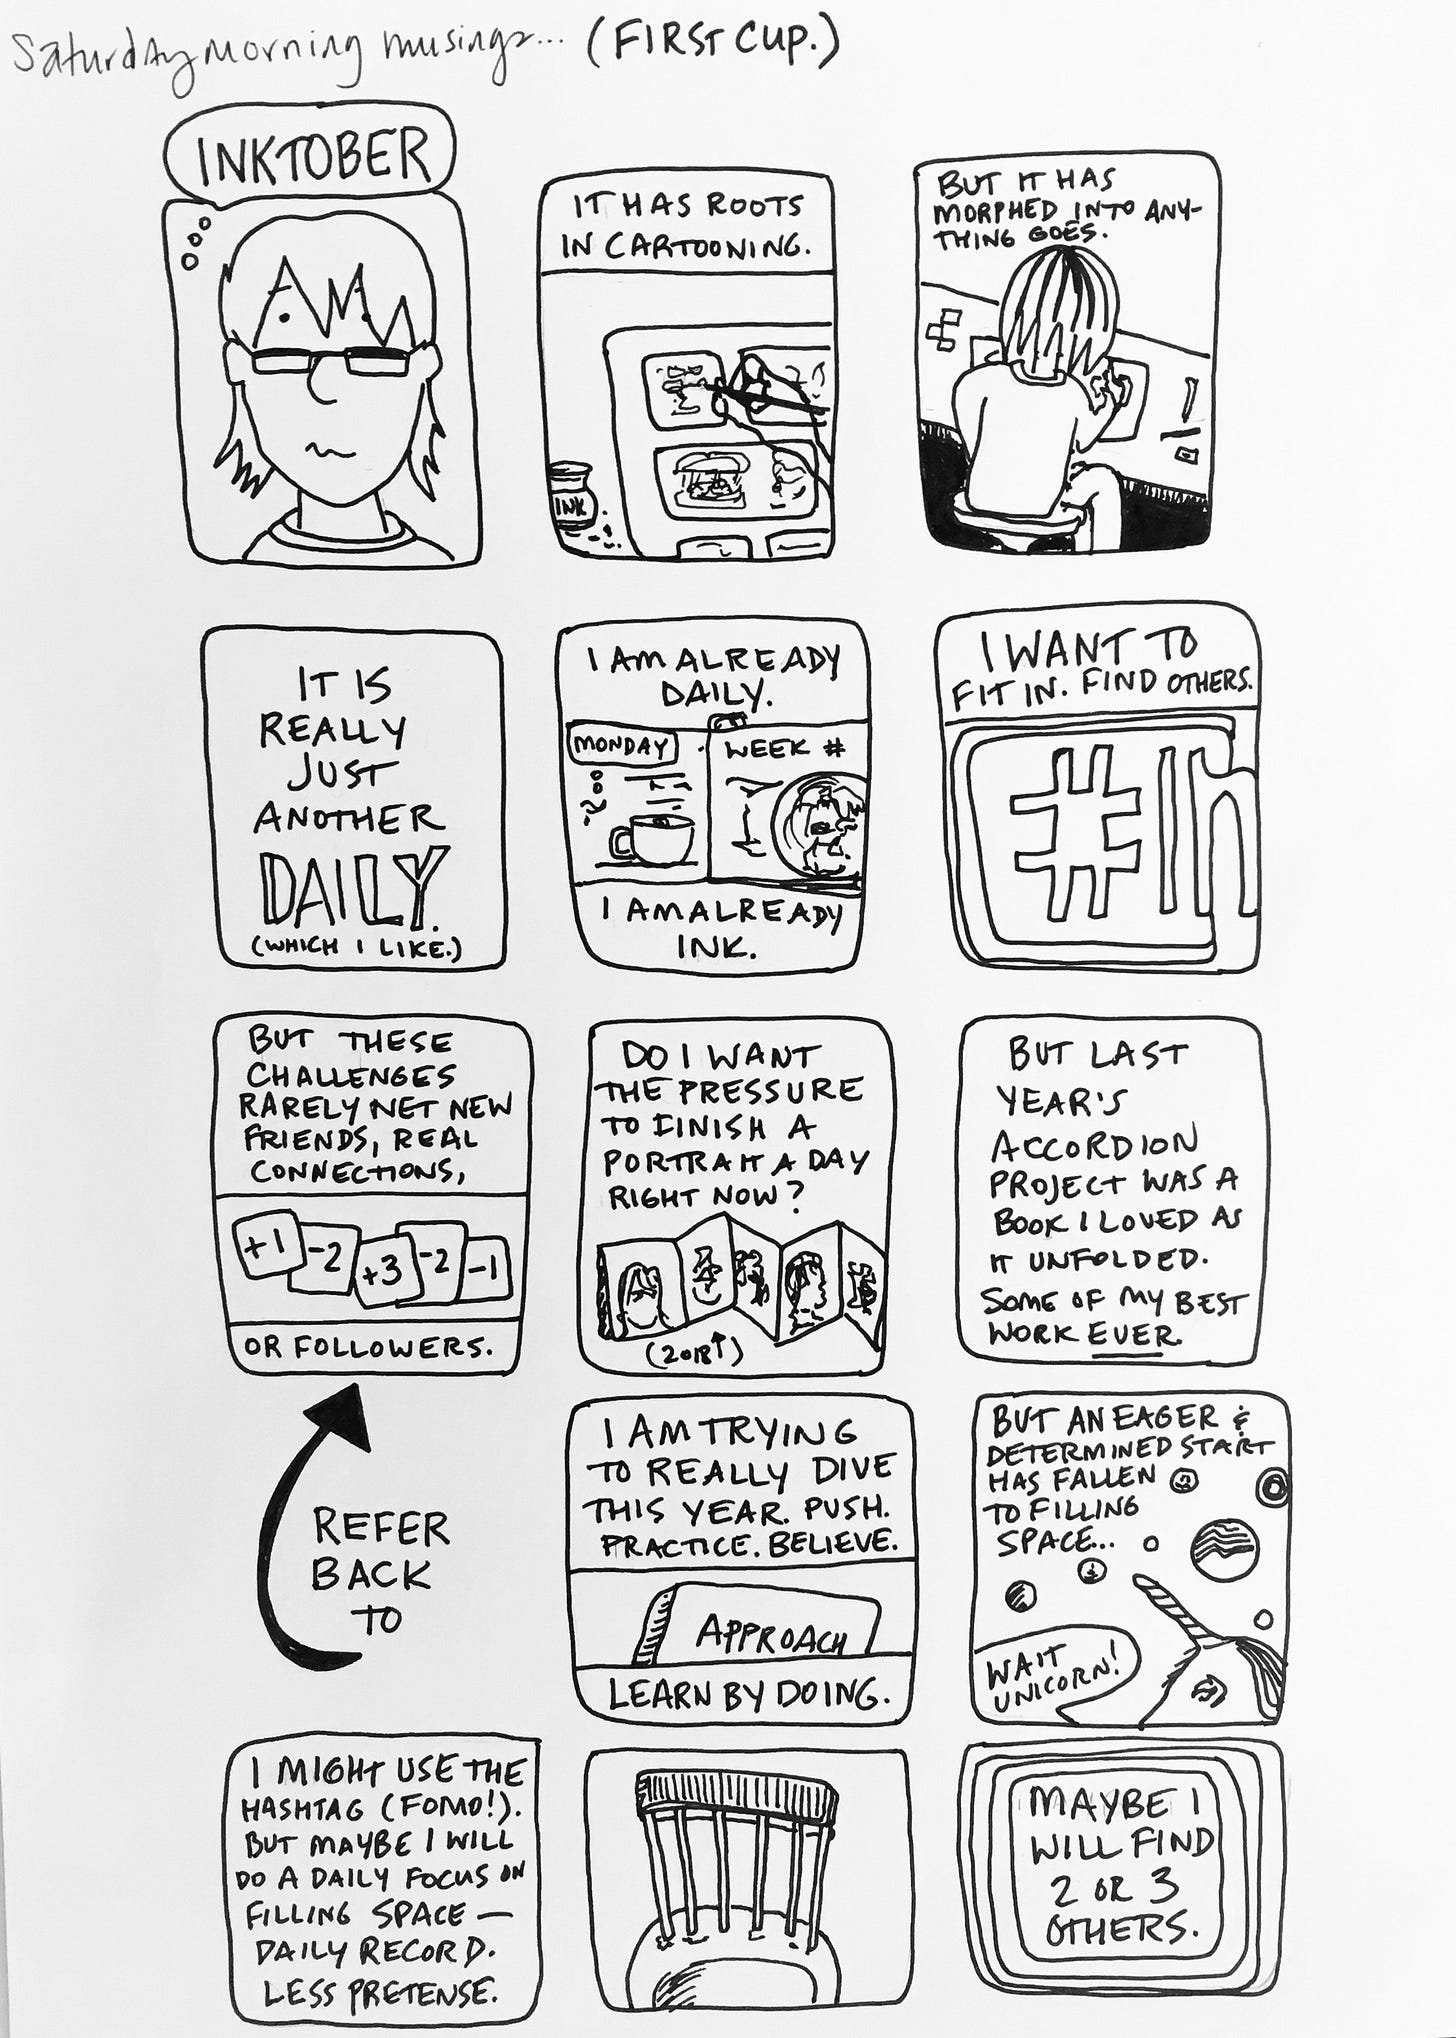 Saturday morning musings... (FIRST CUP.)
INKTOBER
IT HAS ROOTS
IN CARTOONING.
INK
BUT IT HAS
MORPHED INTO ANY-
THING GOES.
IT IS
REALLY
JUST
ANOTHER
DAILY.
(WHICH I LIKE.)
I AM ALREADY
DAILY.
MONDAY
WEEK #
I AM ALREADY
INK.
I WANT TO
FIT IN. FIND OTHERS.
#In
BUT THESE
CHALLENGES
RARELY NET NEW
FRIENDS, REAL
CONNECTIONS,
+1 -2 +3 -2 -1
OR FOLLOWERS.
DO I WANT
THE PRESSURE
TO FINISH A
PORTRAIT A DAY
RIGHT NOW?
(2018↑)
BUT LAST
YEAR'S
ACCORDION
PROJECT WAS A
BOOK I LOVED AS
IT UNFOLDED.
SOME OF MY BEST
WORK EVER.
REFER
BACK
TO
I AM TRYING
TO REALLY DIVE
THIS YEAR. PUSH.
PRACTICE. BELIEVE.
APPROACH
LEARN BY DOING.
BUT AN EAGER &
DETERMINED START
HAS FALLEN
TO FILLING
SPACE...
WAIT
UNICORN!
I MIGHT USE THE
HASHTAG (FOMO!).
BUT MAYBE I WILL
DO A DAILY FOCUS ON
FILLING SPACE —
DAILY RECORD.
LESS PRETENSE.
MAYBE I
WILL FIND
2 OR 3
OTHERS.